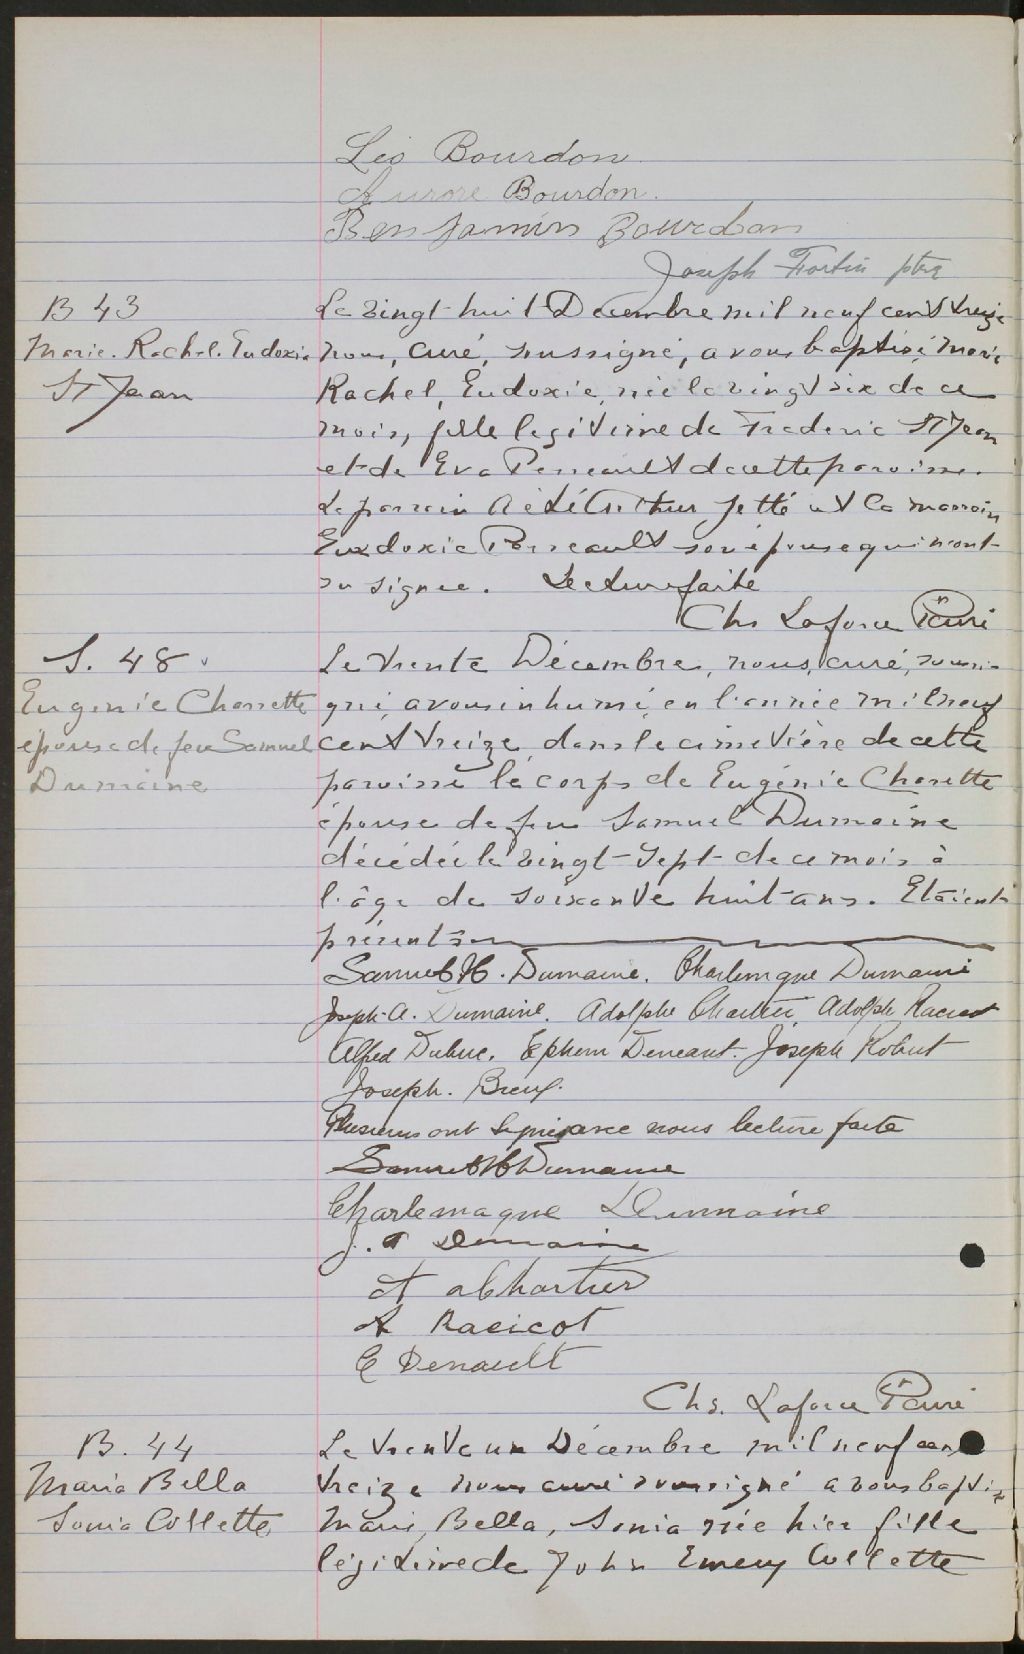 Léo Bourdon
Aurore Bourdon.
Benjamin Bourdon
Joseph Fortin ptre
B 43
Marie. Rachel. Eudoxie
St Jean
Le vingt-huit Décembre mil neuf cent treize
nous, curé, soussigné, avons baptisé, Marie
Rachel, Eudoxie, née le vingt six de ce
mois, fille legitime de Frederic St Jean
et de Eva Perreault de cette paroisse.
Le parrain a été Arthur Jetté et la marraine
Eudoxie Perreault son épouse qui n'ont
su signer. Lecture faite
Chs Laforce Ptre curé
S. 48
Eugenie Chorrette
épouse de feu Samuel
Dumaine
Le trente Décembre, nous, curé, soussi-
gné, avons inhumé, en l'année mil neuf
cent treize dans le cimetière de cette
paroisse le corps de Eugénie Chorette
épouse de feu Samuel Dumaine
décédée le vingt-sept de ce mois à
l'âge de soixante huit ans. Etaient
présents
Samuel H. Dumaine. Charlemagne Dumaine
Joseph-A. Dumaine. Adolphe Chartier Adolphe Racicot
Alfred Dubuc. Ephrem Deneault. Joseph Robert
Joseph. Breux.
Plusieurs ont signé avec nous lecture faite
Samuel H Dumaine
Charlemagne Dumaine
J. A Dumaine
A Chartier
A Racicot
E Denault
Chs. Laforce Ptre curé
B. 44
Maria Bella
Sonia Collette
Le trente un Décembre mil neuf cent
treize nous curé soussigné avons baptisé
Marie, Bella, Sonia née hier fille
légitime de John Emery Collette